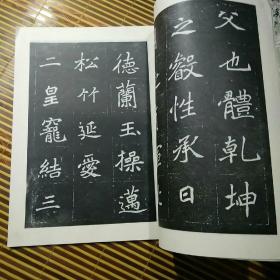 父也體乾坤
之叡性承日
德蘭玉操邁
松竹延愛
二皇寵結三